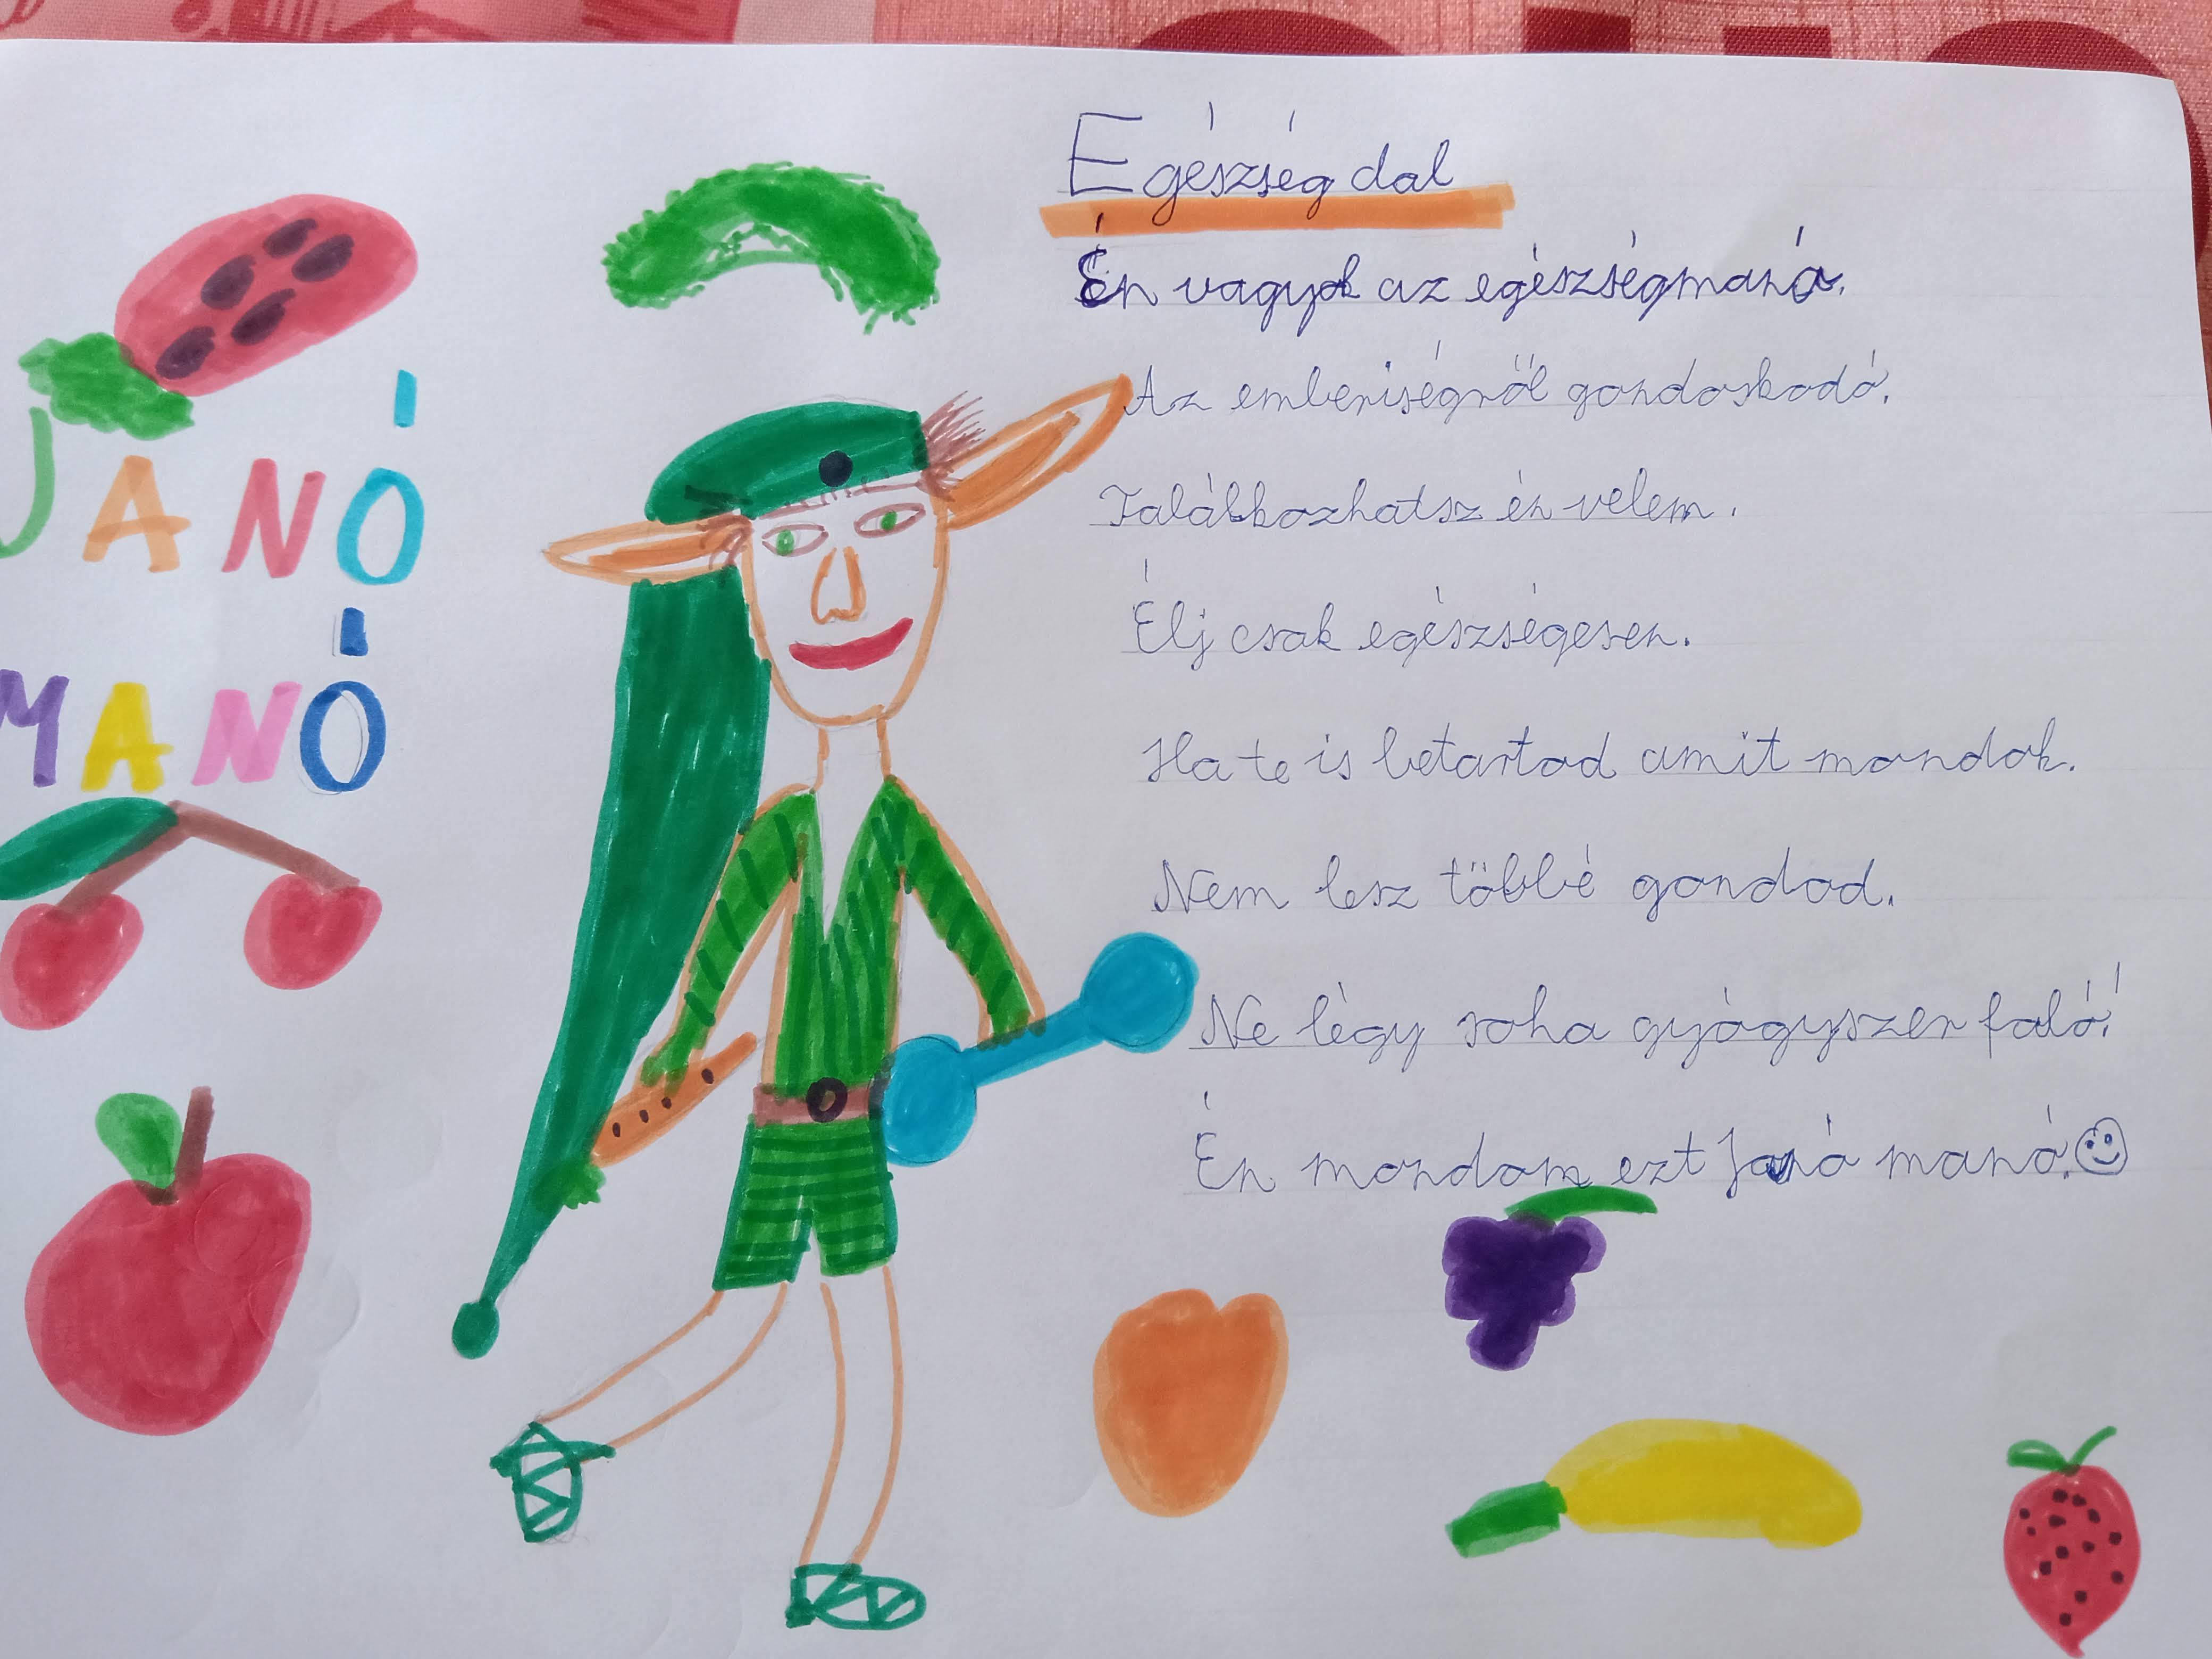 Egészség dal
Én vagyok az egészségmanó.
Az emberiségről gondoskodó.
Találkozhatsz én velem.
Élj csak egészségesen.
Ha te is betartod amit mondok.
Nem lesz többé gondod.
Ne légy soha gyógyszer faló!
Én mondom ezt Janó manó.
JANÓ
MANÓ